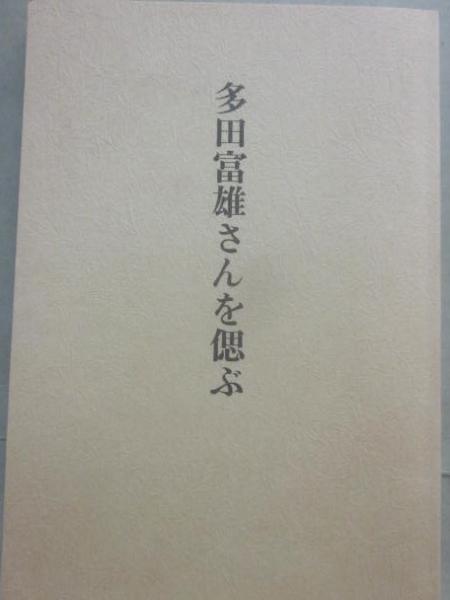 多田富雄さんを偲ぶ